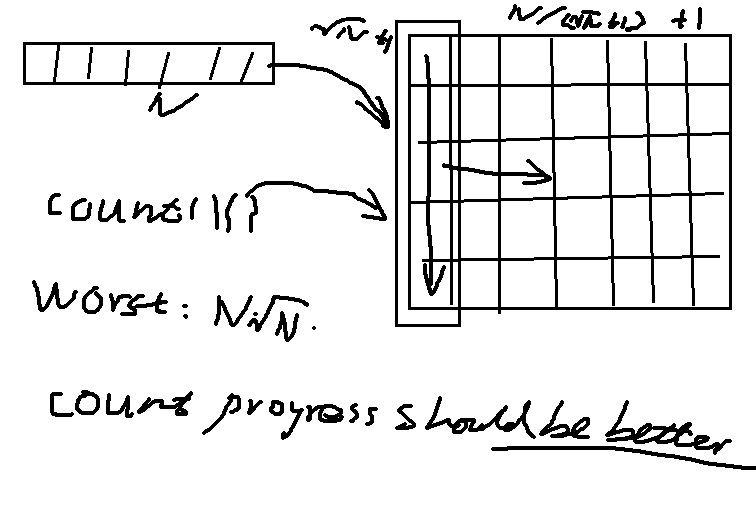 √N +1
N/(√N +1) +1
N
count(){}
Worst: N√N.
count progress should be better